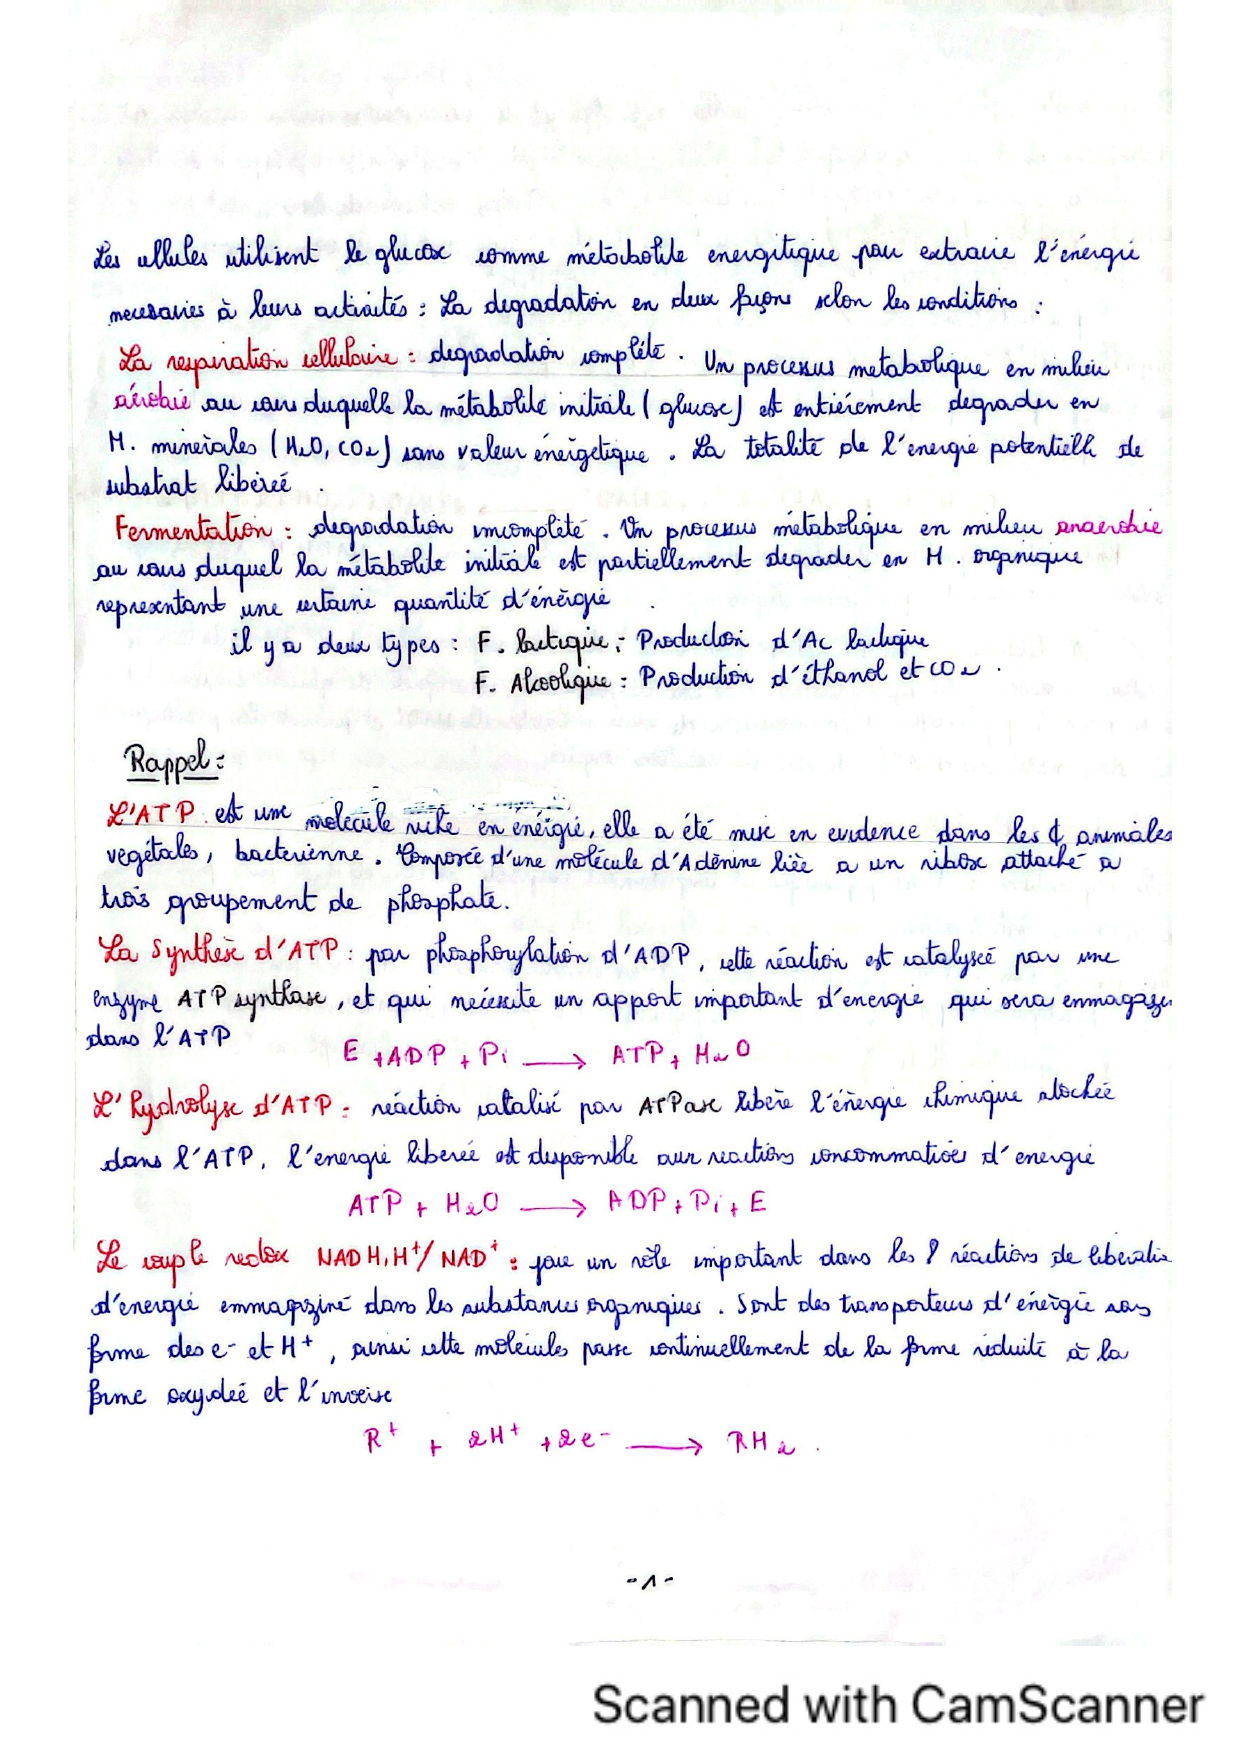 Les cellules utilisent le glucose comme métabolite energitique pour extraire l'énergie
necessaires à leurs activités : La degradation en deux façons selon les conditions :
La respiration cellulaire : degradation complété . Un processus metabolique en milieu
aérobie au cours duquelle la métabolite initiale ( glucose ) est entièrement degrader en
M. minerales ( H2O, CO2 ) sans valeur énérgetique . La totalité de l'energie potentielle de
substrat libéreé .
Fermentation : degradation imcomplété . Un processus métabolique en milieu anaerobie
au cours duquel la métabolite initiale est partiellement degrader en M . organique
representant une certaine quantité d'énérgie .
il y a deux types : F. lactique : Production d'Ac lactique
F. Alcoolique : Production d'éthanol et CO2 .
Rappel :
L'ATP est une molécule riche en énérgie, elle a été mise en evidence dans les ¢ animales
végétales, bacterienne . Composée d'une molécule d'Adénine liée a un ribose attaché a
trois groupement de phosphate.
La Synthèse d'ATP : par phosphorylation d'ADP, cette réaction est catalyseé par une
enzyme ATP synthase, et qui nécessite un apport important d'energie qui sera enmagazi
dans l'ATP
E + ADP + Pi ⟶ ATP + H2O
L'hydrolyse d'ATP : réaction catalisé par ATPase libère l'énérgie chimique stockée
dans l'ATP, l'energie libereé est disponible aux reactions concommatrices d'energie
ATP + H2O ⟶ ADP + Pi + E
Le couple redox NADH,H+/NAD+ : joue un rôle important dans les réactions de libératio
d'energie emmagaziné dans les substances organiques . Sont des transporteurs d'énérgie sous
forme des e- et H+ , ainsi cette molécules passe continuellement de la forme réduite à la
forme oxydeé et l'inverse
R+ + 2H+ + 2e- ⟶ RH2 .
-1-
Scanned with CamScanner